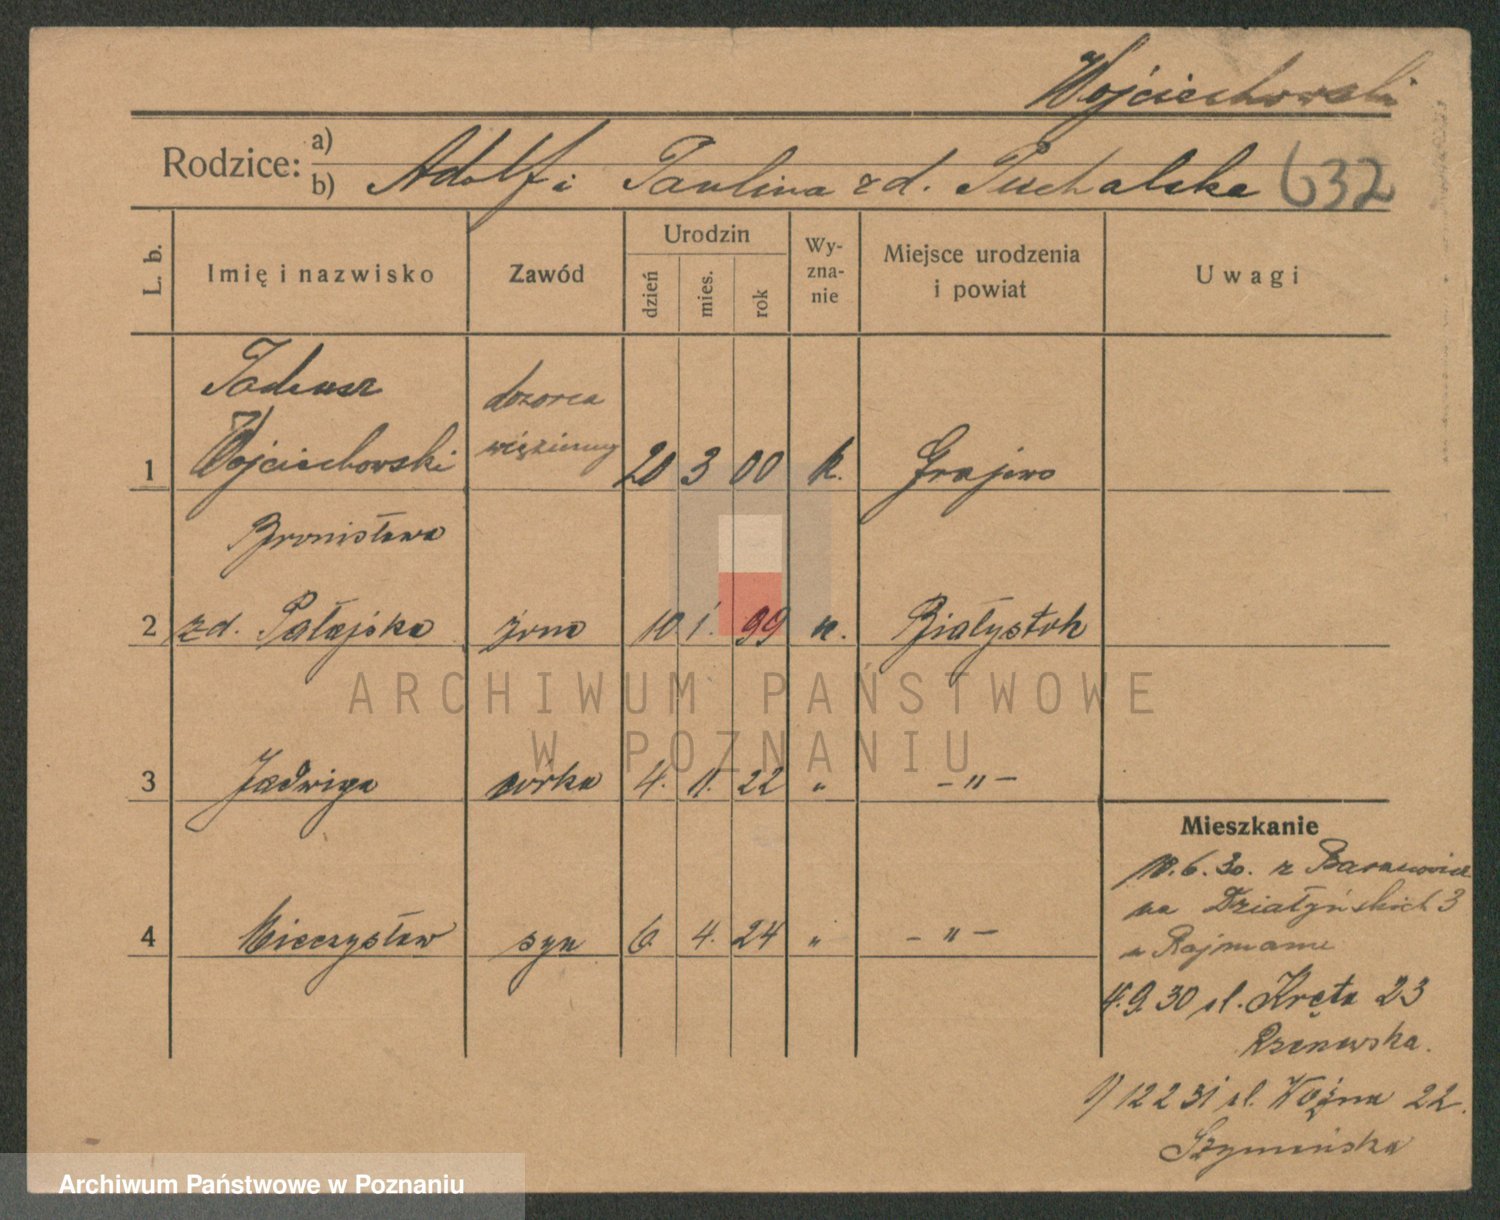 Wojciechowski
Rodzice: a)
b) Adolf i Paulina zd. Puchalska 632
L. b. Imię i nazwisko Zawód Urodzin dzień mies. rok Wy-zna-nie Miejsce urodzenia i powiat Uwagi
Tadeusz dozorca
1 Wojciechowski więzienny 20 3 00 k. Grajewo
Bronisława
2 zd. żona 10 1. 99 k. Białystok
3 Jadwiga córka 4. 11. 22 " - " -
4 Mieczysław syn 6. 4. 24 " - " -
Mieszkanie
.6.30. z Baranowicz
na Działyńskich 3
u Rajmana
4.9.30 ul. Kręta 23
1) 12 2 31 ul. Woźna 22.
Szymańska
ARCHIWUM PAŃSTWOWE
W POZNANIU
Archiwum Państwowe w Poznaniu